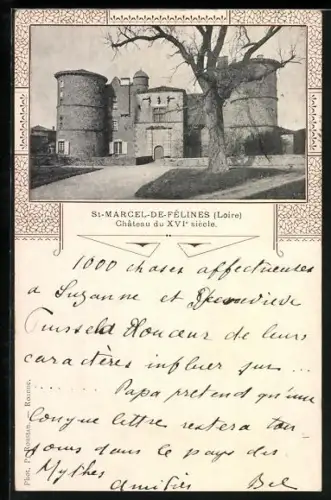 St-MARCEL-DE-FÉLINES (Loire)
Château du XVIe siècle.
1000 choses affectueuses
à Suzanne et Geneviève
Puisse la douceur de leurs
caractères influer sur ...
....... Papa prétend qu'une
longue lettre restera tou-
jours dans le pays des
Mythes
Amitiés Bel
Phot. — Roanne.